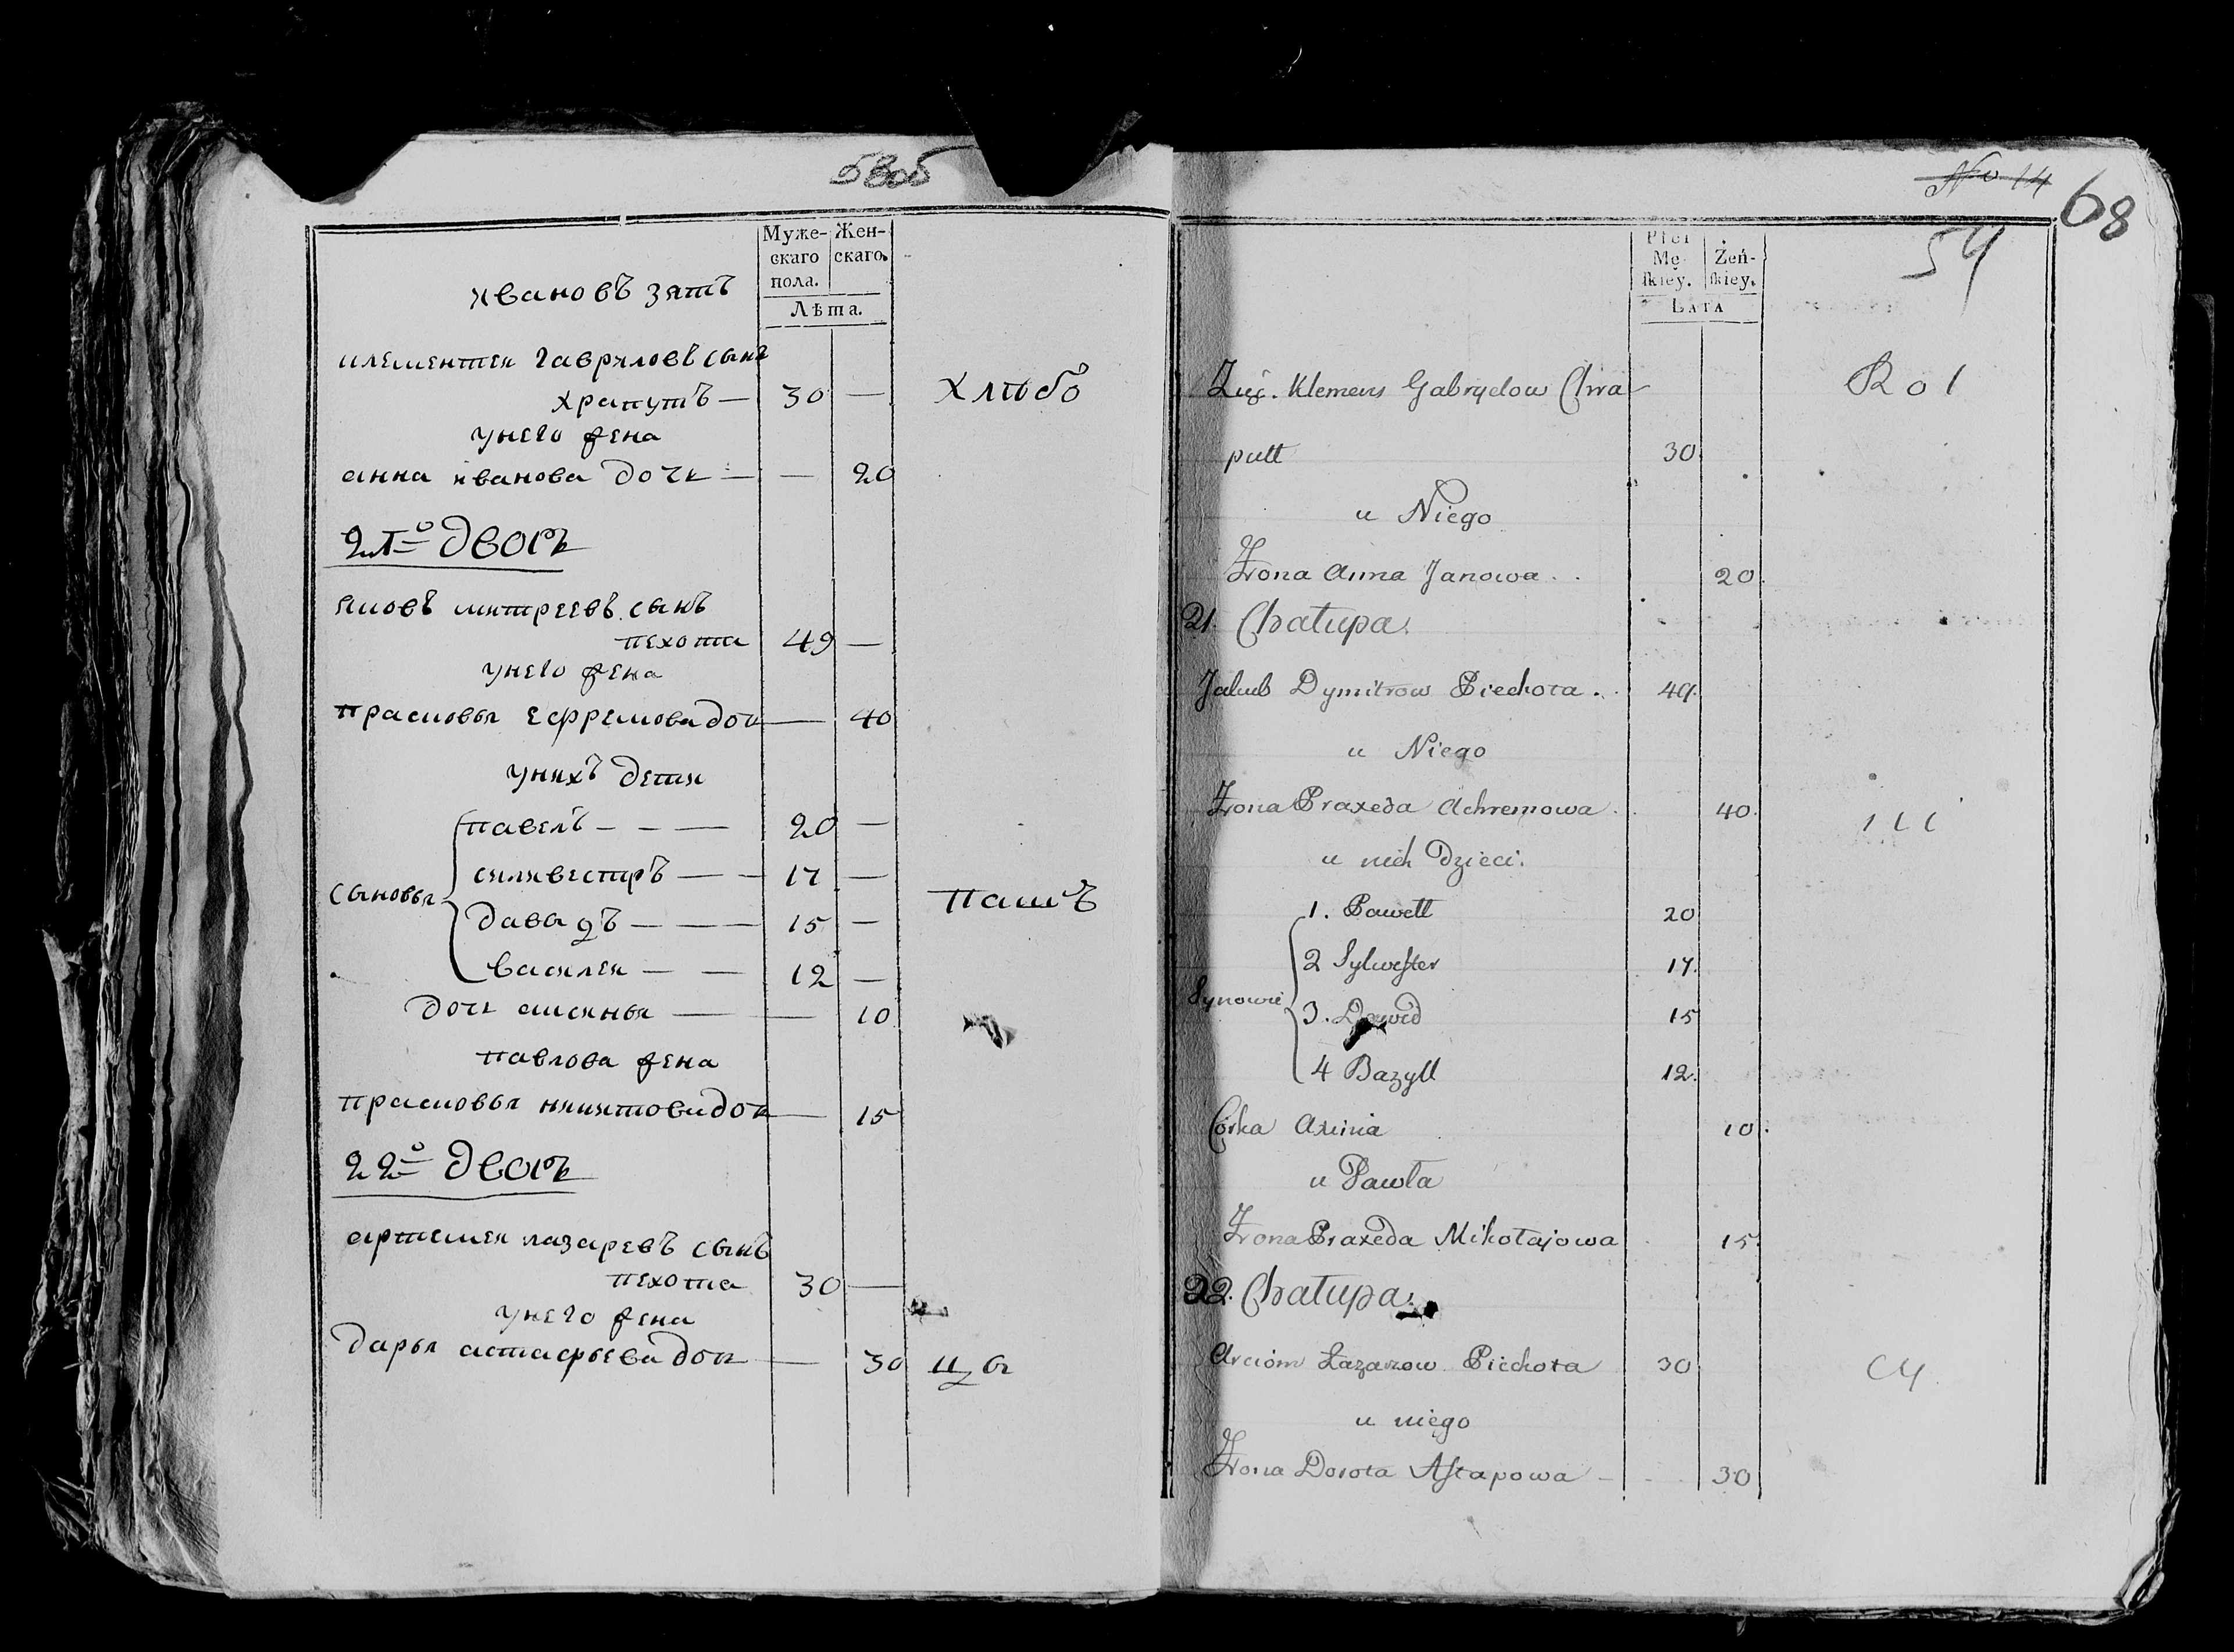 58об
Муже- Жен-
скаго скаго.
пола.
Лѣта.
ивановъ зять
клементеи гавриловъ сынъ
храпутъ — 30 —
унего жена
анна иванова дочь — — 20
хлѣбо
21о дворъ
яковъ митреевъ сынъ
пехота 49 —
унего жена
прасковья ефремова доч — 40
унихъ дети
сыновья
павелъ — — — 20 —
силивестръ — — 17 —
давыдъ — — — 15 —
василеи — — 12 —
дочь аксинья — — 10
пашъ
павлова жена
прасковья никитова доч — 15
22о дворъ
артемеи лазаревъ сынъ
пехота 30 —
унего жена
дарья астафьева доч — 30
цы
No 14
68
54
Płci
Mę- Żeń-
skiey. skiey.
Lata
Zięć. Klemens Gabryelow Chra
putt 30
Rol
u Niego
Żona Anna Janowa . . 20.
21. Chałupa.
Jakub Dymitrow Piechota . . 49.
u Niego
Żona Praxeda Achremowa . 40.
u nich Dzieci.
Synowie
1. Pawełł 20
2 Sylwester 17.
3. Dawid 15
4 Bazyll 12.
Córka Axinia 10.
u Pawła
Żona Praxeda Mikołajowa 15.
22. Chałupa.
Arciom Łazarzow Piechota 30
cy
u niego
Żona Dorota Astapowa - 30